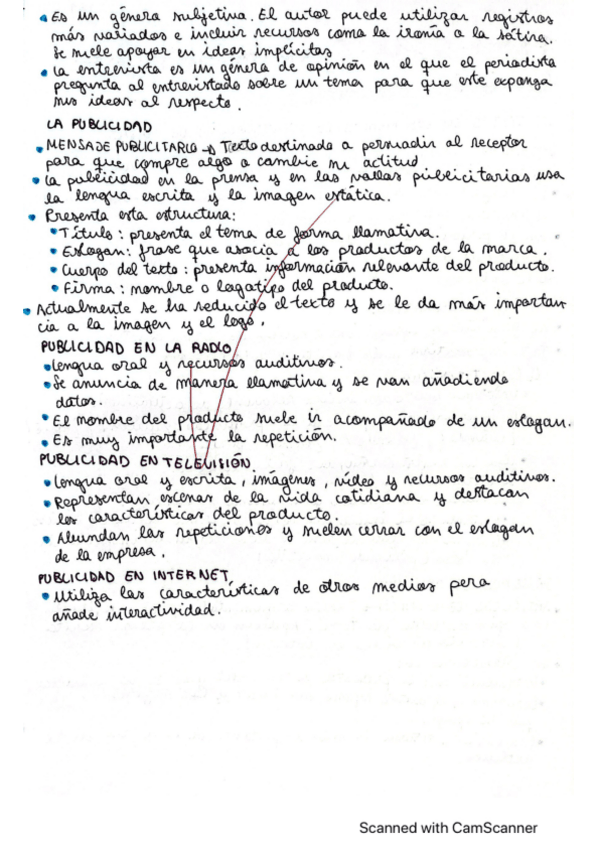 • Es un género subjetivo. El autor puede utilizar registros
más variados e incluir recursos como la ironía o la sátira.
Se suele apoyar en ideas implícitas
• La entrevista es un género de opinión en el que el periodista
pregunta al entrevistado sobre un tema para que este exponga
sus ideas al respecto.
LA PUBLICIDAD
• MENSAJE PUBLICITARIO → Texto destinado a persuadir al receptor
para que compre algo o cambie su actitud
• La publicidad en la prensa y en las vallas publicitarias usa
la lengua escrita y la imagen estática.
• Presenta esta estructura:
• Título: presenta el tema de forma llamativa.
• Eslogan: frase que asocia a los productos de la marca.
• Cuerpo del texto: presenta información relevante del producto.
• Firma: nombre o logotipo del producto.
• Actualmente se ha reducido el texto y se le da más importan
cia a la imagen y el logo.
PUBLICIDAD EN LA RADIO
• Lengua oral y recursos auditivos.
• Se anuncia de manera llamativa y se van añadiendo
datos.
• El nombre del producto suele ir acompañado de un eslogan.
• Es muy importante la repetición.
PUBLICIDAD EN TELEVISIÓN
• Lengua oral y escrita, imágenes, vídeo y recursos auditivos.
• Representan escenas de la vida cotidiana y destacan
las características del producto.
• Abundan las repeticiones y suelen cerrar con el eslogan
de la empresa.
PUBLICIDAD EN INTERNET
• Utiliza las características de otros medios pero
añade interactividad.
Scanned with CamScanner